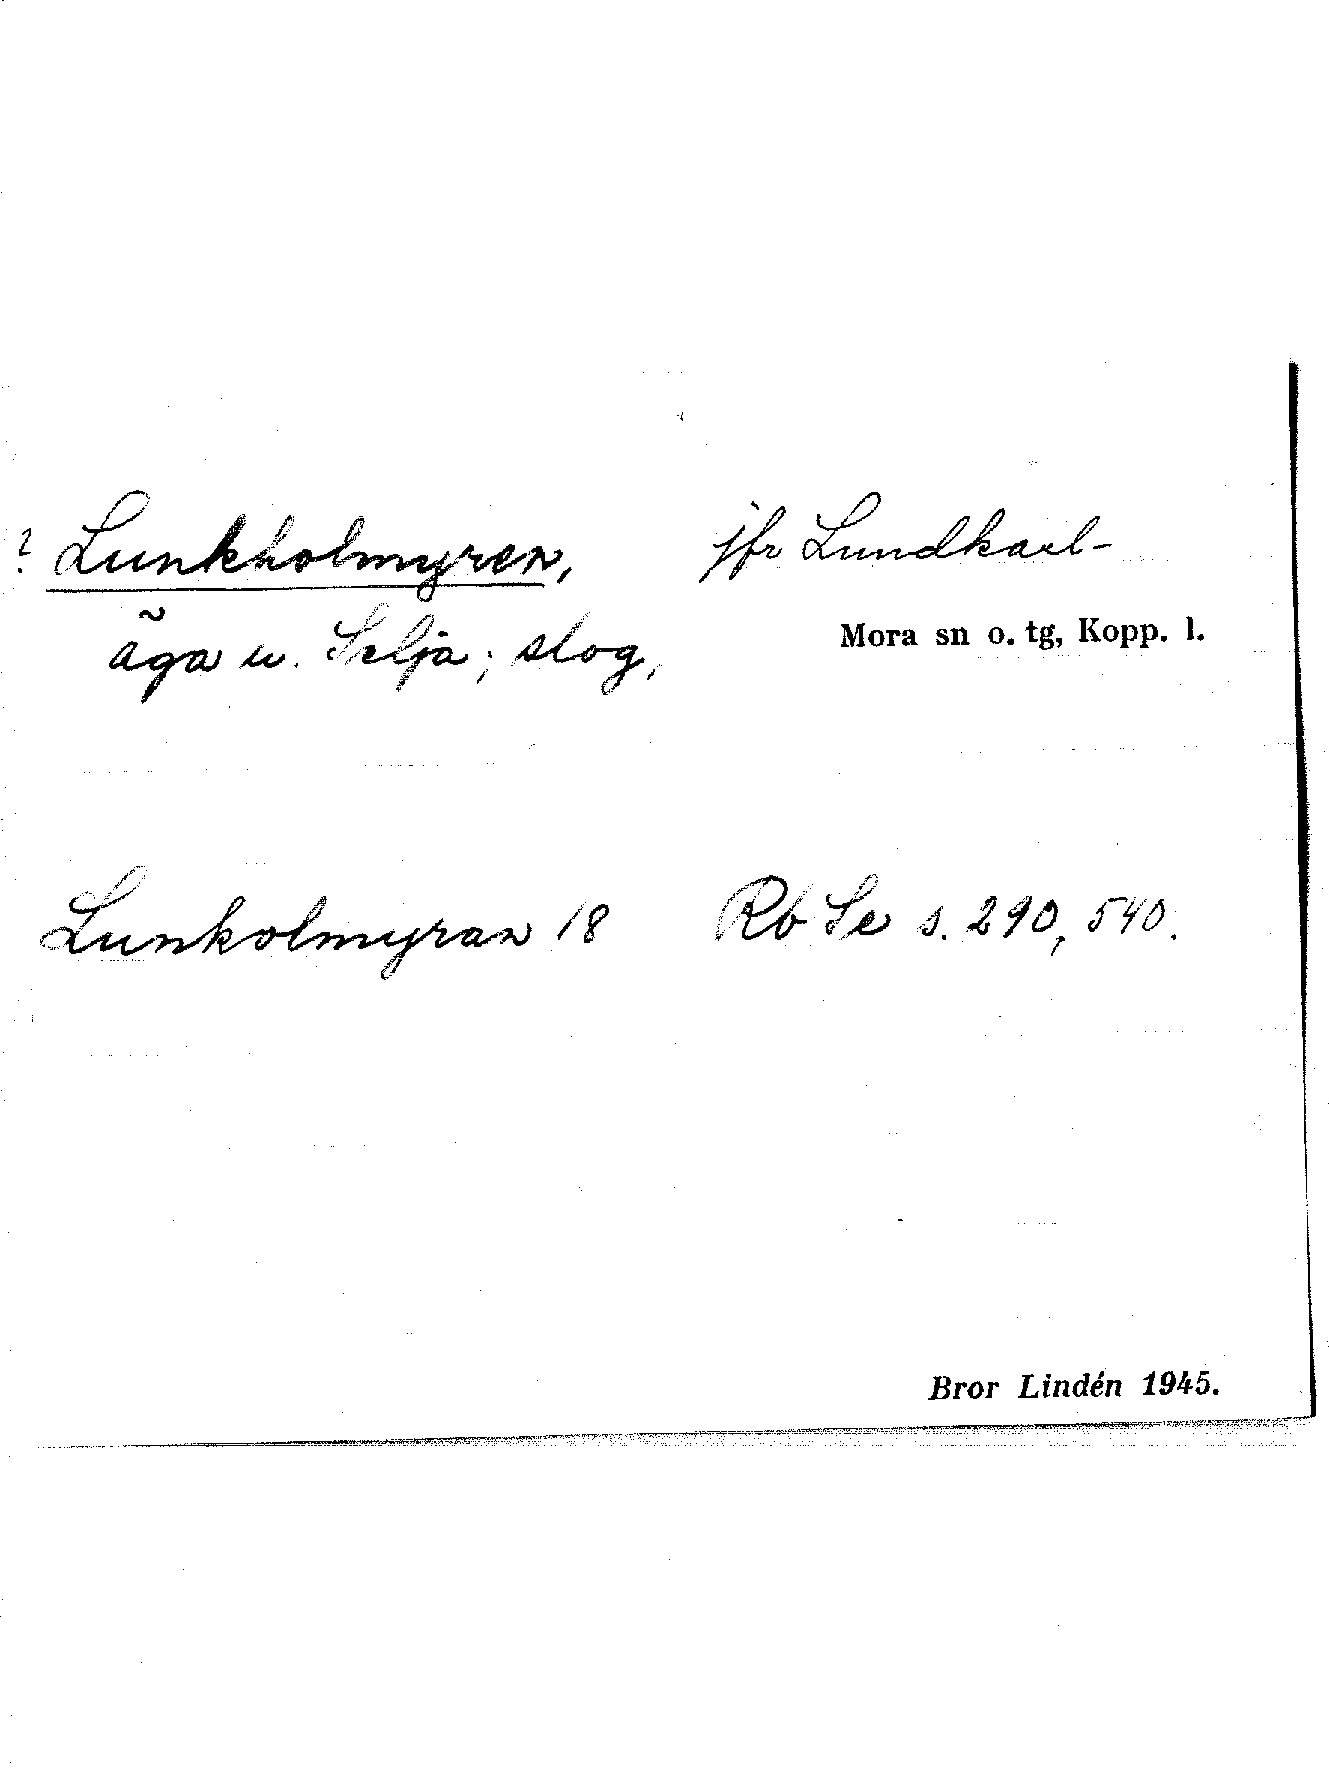 ? Lunkholmyren, jfr Lundkarl-
Mora sn o. tg, Kopp. l.
äga u. Selja; slog,
Lunkolmyran 18 Rb Se s. 290, 540.
Bror Lindén 1945.